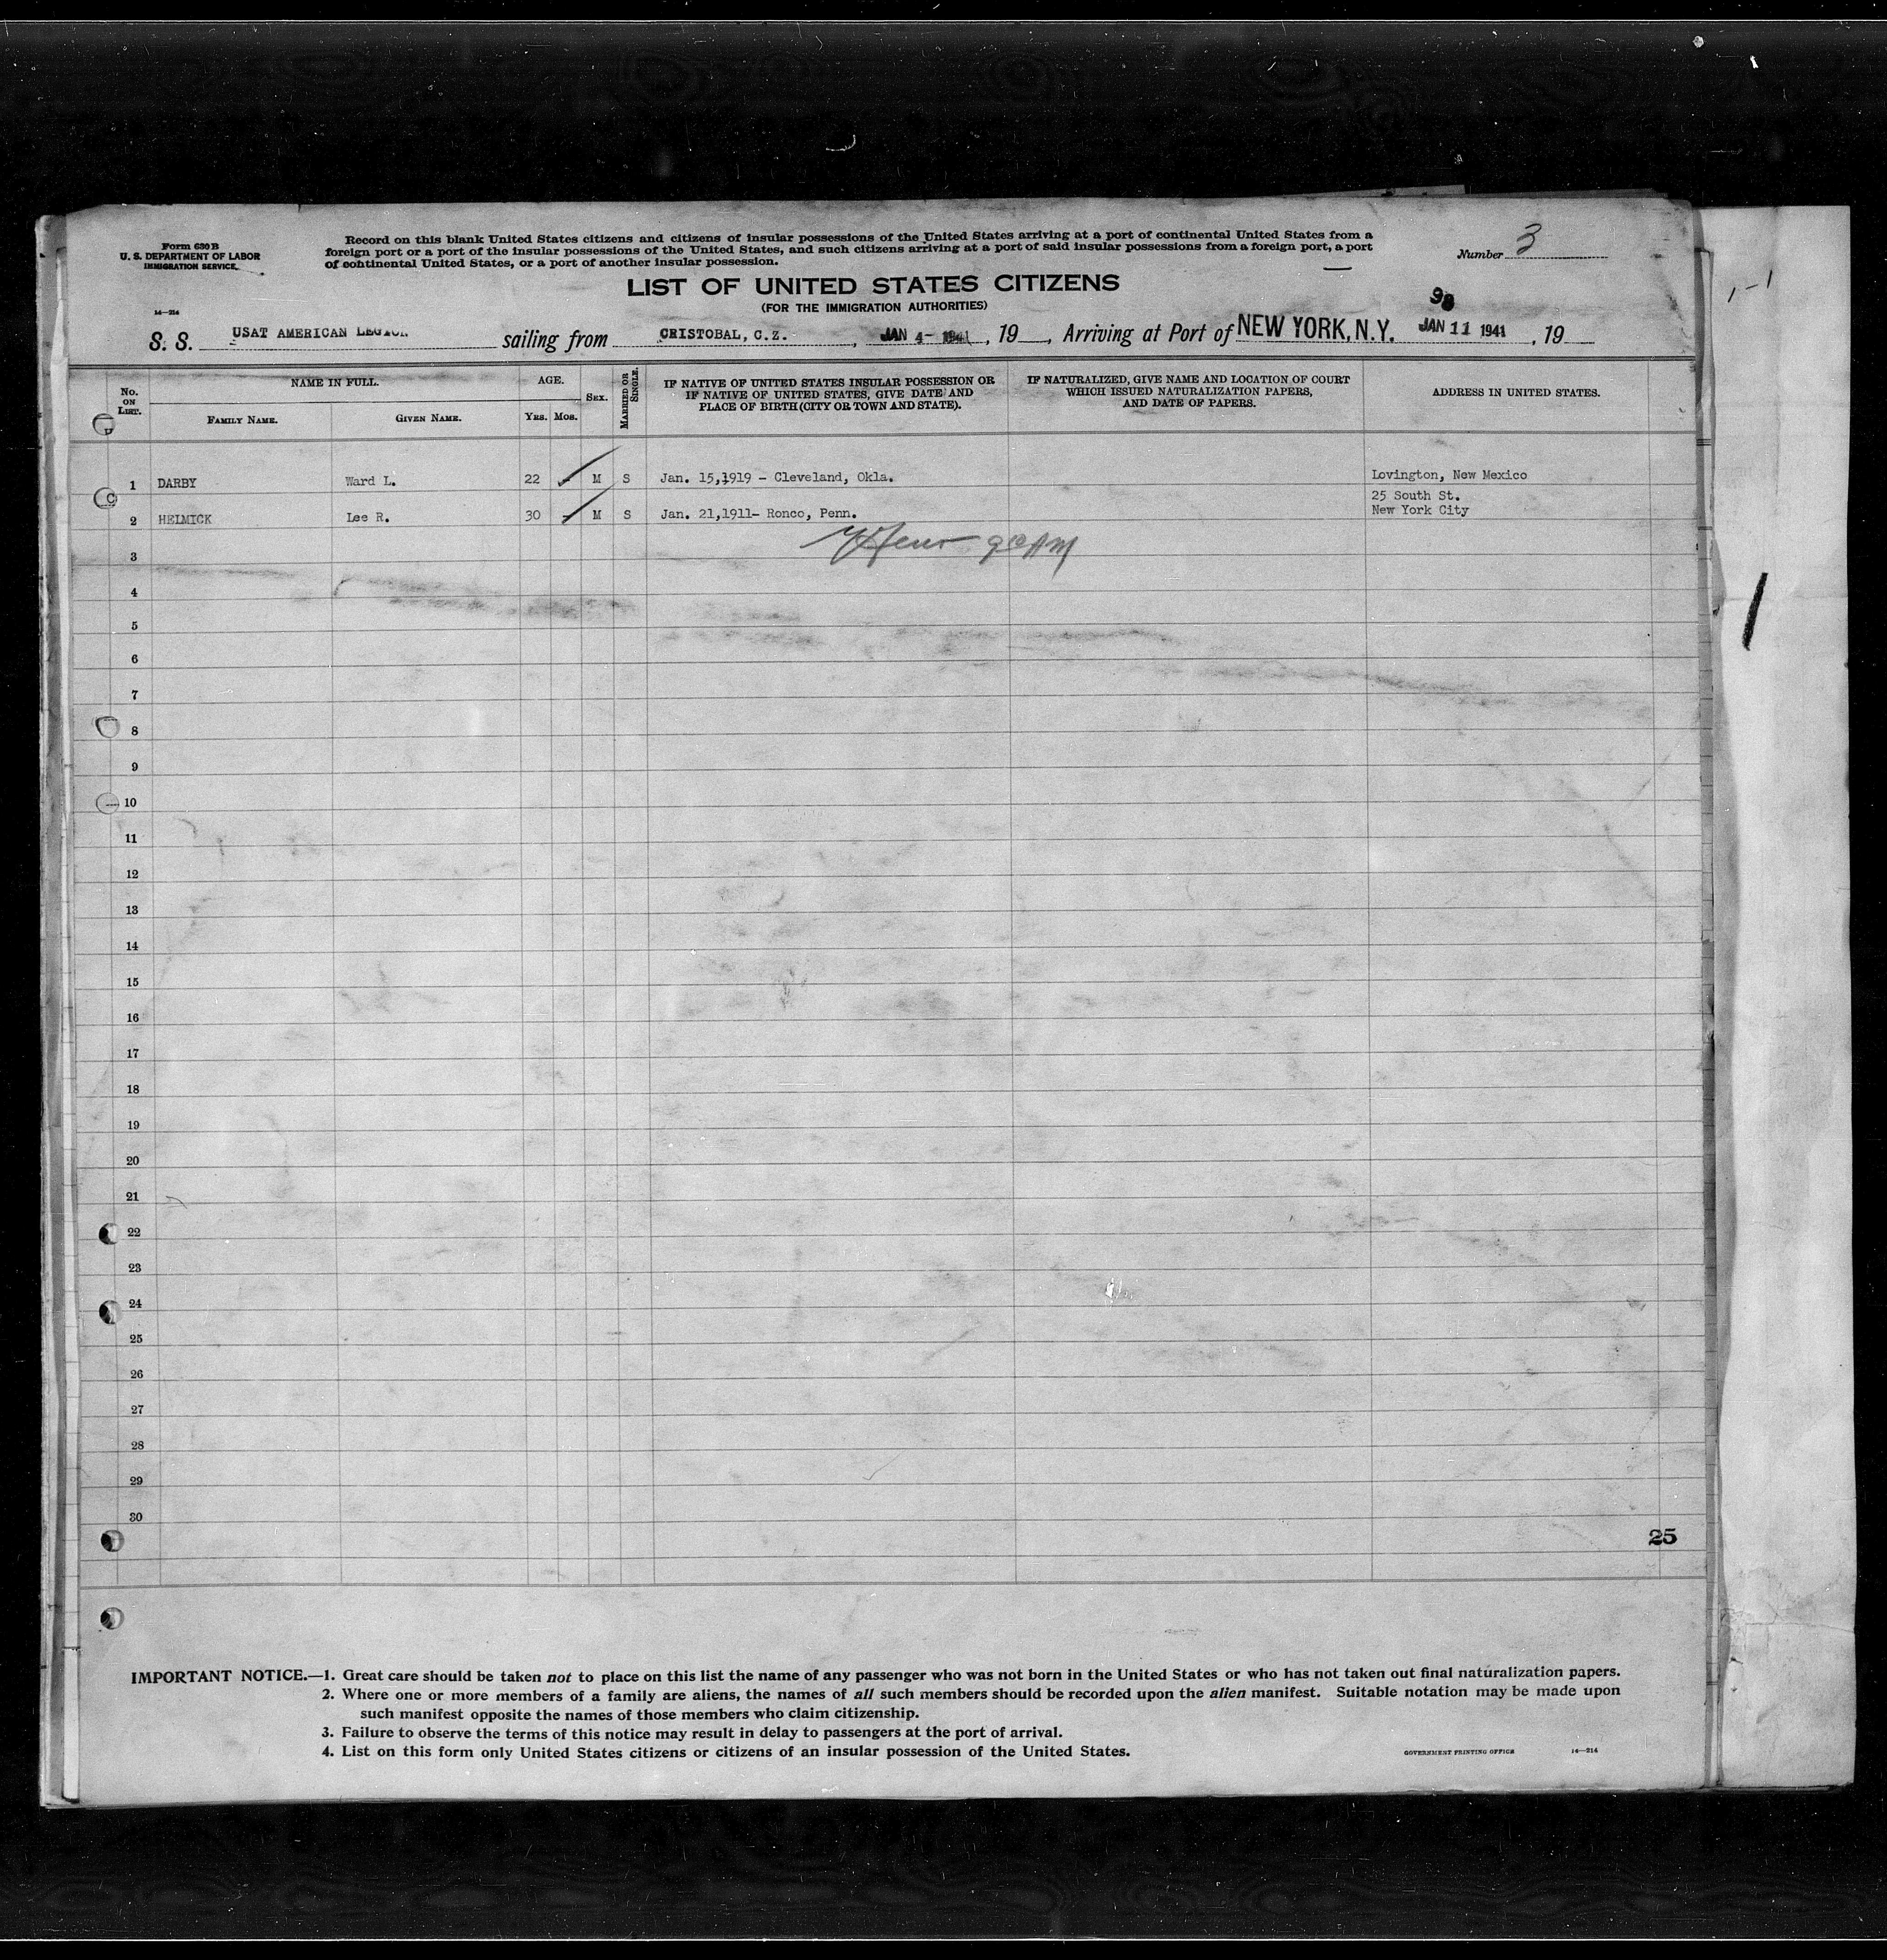 Form 630 B
U. S. DEPARTMENT OF LABOR
IMMIGRATION SERVICE.
14—214
Record on this blank United States citizens and citizens of insular possessions of the United States arriving at a port of continental United States from a
foreign port or a port of the insular possessions of the United States, and such citizens arriving at a port of said insular possessions from a foreign port, a port
of continental United States, or a port of another insular possession.
Number 3
LIST OF UNITED STATES CITIZENS
(FOR THE IMMIGRATION AUTHORITIES)
98
1-1
S. S. USAT AMERICAN LEGION sailing from CRISTOBAL, C.Z., JAN 4- 1941, 19 , Arriving at Port of NEW YORK, N.Y. JAN 11 1941, 19
No. ON LIST.
NAME IN FULL.
FAMILY NAME.
GIVEN NAME.
AGE.
YRS. MOS.
SEX.
MARRIED OR SINGLE.
IF NATIVE OF UNITED STATES INSULAR POSSESSION OR
IF NATIVE OF UNITED STATES, GIVE DATE AND
PLACE OF BIRTH (CITY OR TOWN AND STATE).
IF NATURALIZED, GIVE NAME AND LOCATION OF COURT
WHICH ISSUED NATURALIZATION PAPERS,
AND DATE OF PAPERS.
ADDRESS IN UNITED STATES.
1 DARBY Ward L. 22 - M S Jan. 15,1919 - Cleveland, Okla. Lovington, New Mexico
25 South St.
2 HELMICK Lee R. 30 - M S Jan. 21,1911- Ronco, Penn. New York City
AM
3
4
5
6
7
8
9
10
11
12
13
14
15
16
17
18
19
20
21
22
23
24
25
26
27
28
29
30
25
IMPORTANT NOTICE.—1. Great care should be taken not to place on this list the name of any passenger who was not born in the United States or who has not taken out final naturalization papers.
2. Where one or more members of a family are aliens, the names of all such members should be recorded upon the alien manifest. Suitable notation may be made upon
such manifest opposite the names of those members who claim citizenship.
3. Failure to observe the terms of this notice may result in delay to passengers at the port of arrival.
4. List on this form only United States citizens or citizens of an insular possession of the United States.
GOVERNMENT PRINTING OFFICE 14—214